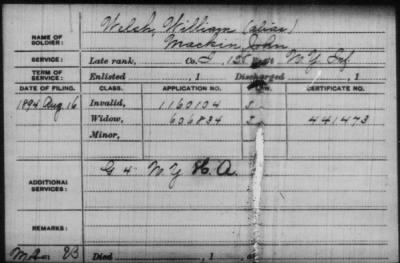 NAME OF SOLDIER: Welsh, William (alias)
Mackin, John
SERVICE: Late rank, Co. I, 158 Reg't N.Y. Inf
TERM OF SERVICE: Enlisted , 1 Discharged , 1
DATE OF FILING. CLASS. APPLICATION NO. LAW. CERTIFICATE NO.
1894 Aug. 16 Invalid, 1160104
Widow, 606834 441473
Minor,
ADDITIONAL SERVICES: G 4 N.Y. H.A.
REMARKS:
Died , 1 , at